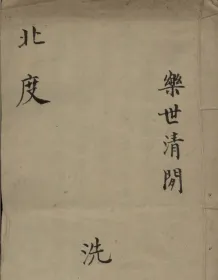 樂世清閒
北度
洗